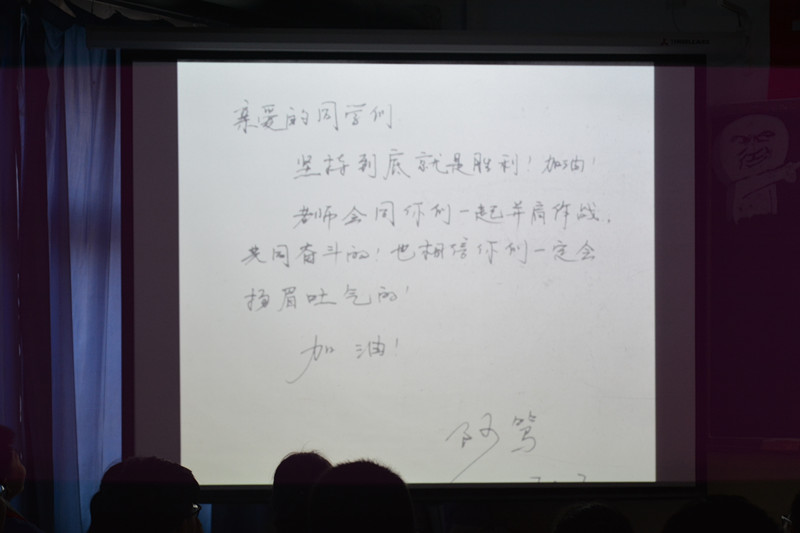 亲爱的同学们
坚持到底就是胜利！加油！
老师会同你们一起并肩作战，
共同奋斗的！也相信你们一定会
扬眉吐气的！
加油！
阿笃